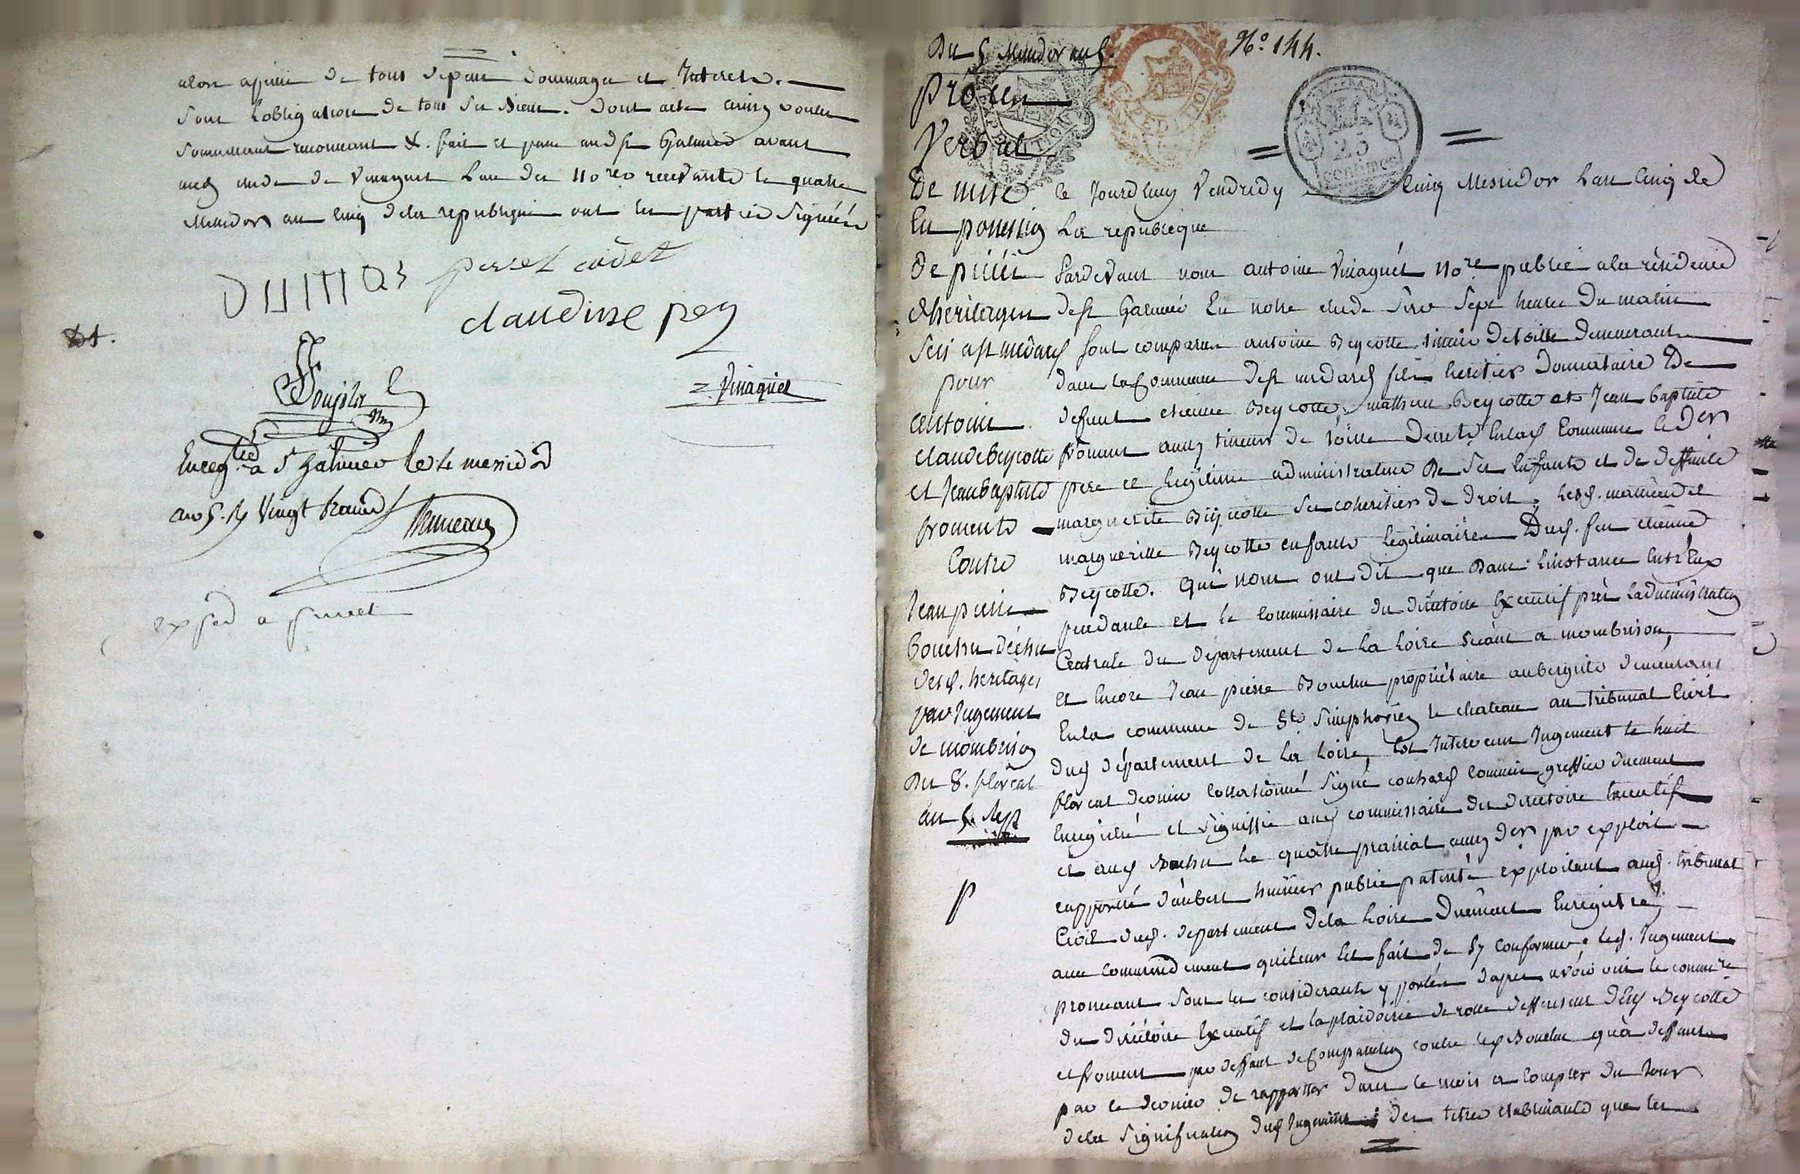 alors a peine de tous depens dommages et Interets.
sous l'obligation de tous ses biens. Dont acte ainsy voulu
renonceant &. fait et passé aud st Galmier avant
midy etude de Vinagnet L'un des no.res recevants le quatre
Messidor an cinq de la republique ont les parties signées
Dumas peret cadet
claudine pey
Vinagnet
Enreg.tré a St Galmier le 4 messid
an 5. Ry Vingt
Du 5 Messidor an 5. N.o 144.
Procès
Verbal
23
centimes
De mise
En possession
De pieces
& heritages
scis a st medard
pour
antoine
claude beycotte
et Jean baptiste
froment
Contre
Jean pierre
bouchu déchu
desd. heritages
par Jugement
de monbrison
Du 8. floreal
an 5. Rep.
P
Ce Jourdhuy Vendredy cinq Messidor L'an Cinq de
La republicque
Pardevant nous antoine Vinagnet no.re public a la résidence
de st Galmier En notre etude sur sept heures du matin
sont comparus antoine Beycotte demeurant
dans la Commune de st medard fils heritier Donnataire De
defunt etienne Beycotte, mathieu Beycotte et Jean baptiste
froment aussy de Commune Le der
pere et Legitime administrateur De ses Enfants et de deffunte
marguerite Beycotte ses coheritiers de droit, lesd. mathieu et
margueritte Beycotte enfants légitimaires Dud. feu etienne
Beycotte. Qui nous ont dit que Dans L'instance Entr'Eux
pendante et le commissaire du directoire Executif près L'administration
Centrale du département de La Loire séant a monbrison,
et Encore Jean pierre Bouchu propriétaire aubergiste demeurant
En la commune de St. Simphorien le chateau au tribunal Civil
dud département de La Loire, Est Intervenu Jugement le huit
floreal dernier collationné signé commis greffier duement
Enregistré et signiffié aud commissaire du directoire Executif
et aud Bouchu le quatre prairial aussy der par exploit
rapporté d'aubert huissier public patenté exploitant aud. tribunal
Civil dud. departement de la Loire Duement Enregistré,
avec commendement qui leur Est fait de s'y conformer; led. Jugement
prononcant sous les considerants y portés d'apres avoir oui le commre
du directoire Executif et la plaidoirie de deffenseur desd Beycotte
et froment par deffaut de Comparution contre led Bouchu qu'a deffaut
par le dernier de rapporter dans le mois a compter du Jour
de la signification dud Jugement des titres etablissants que les